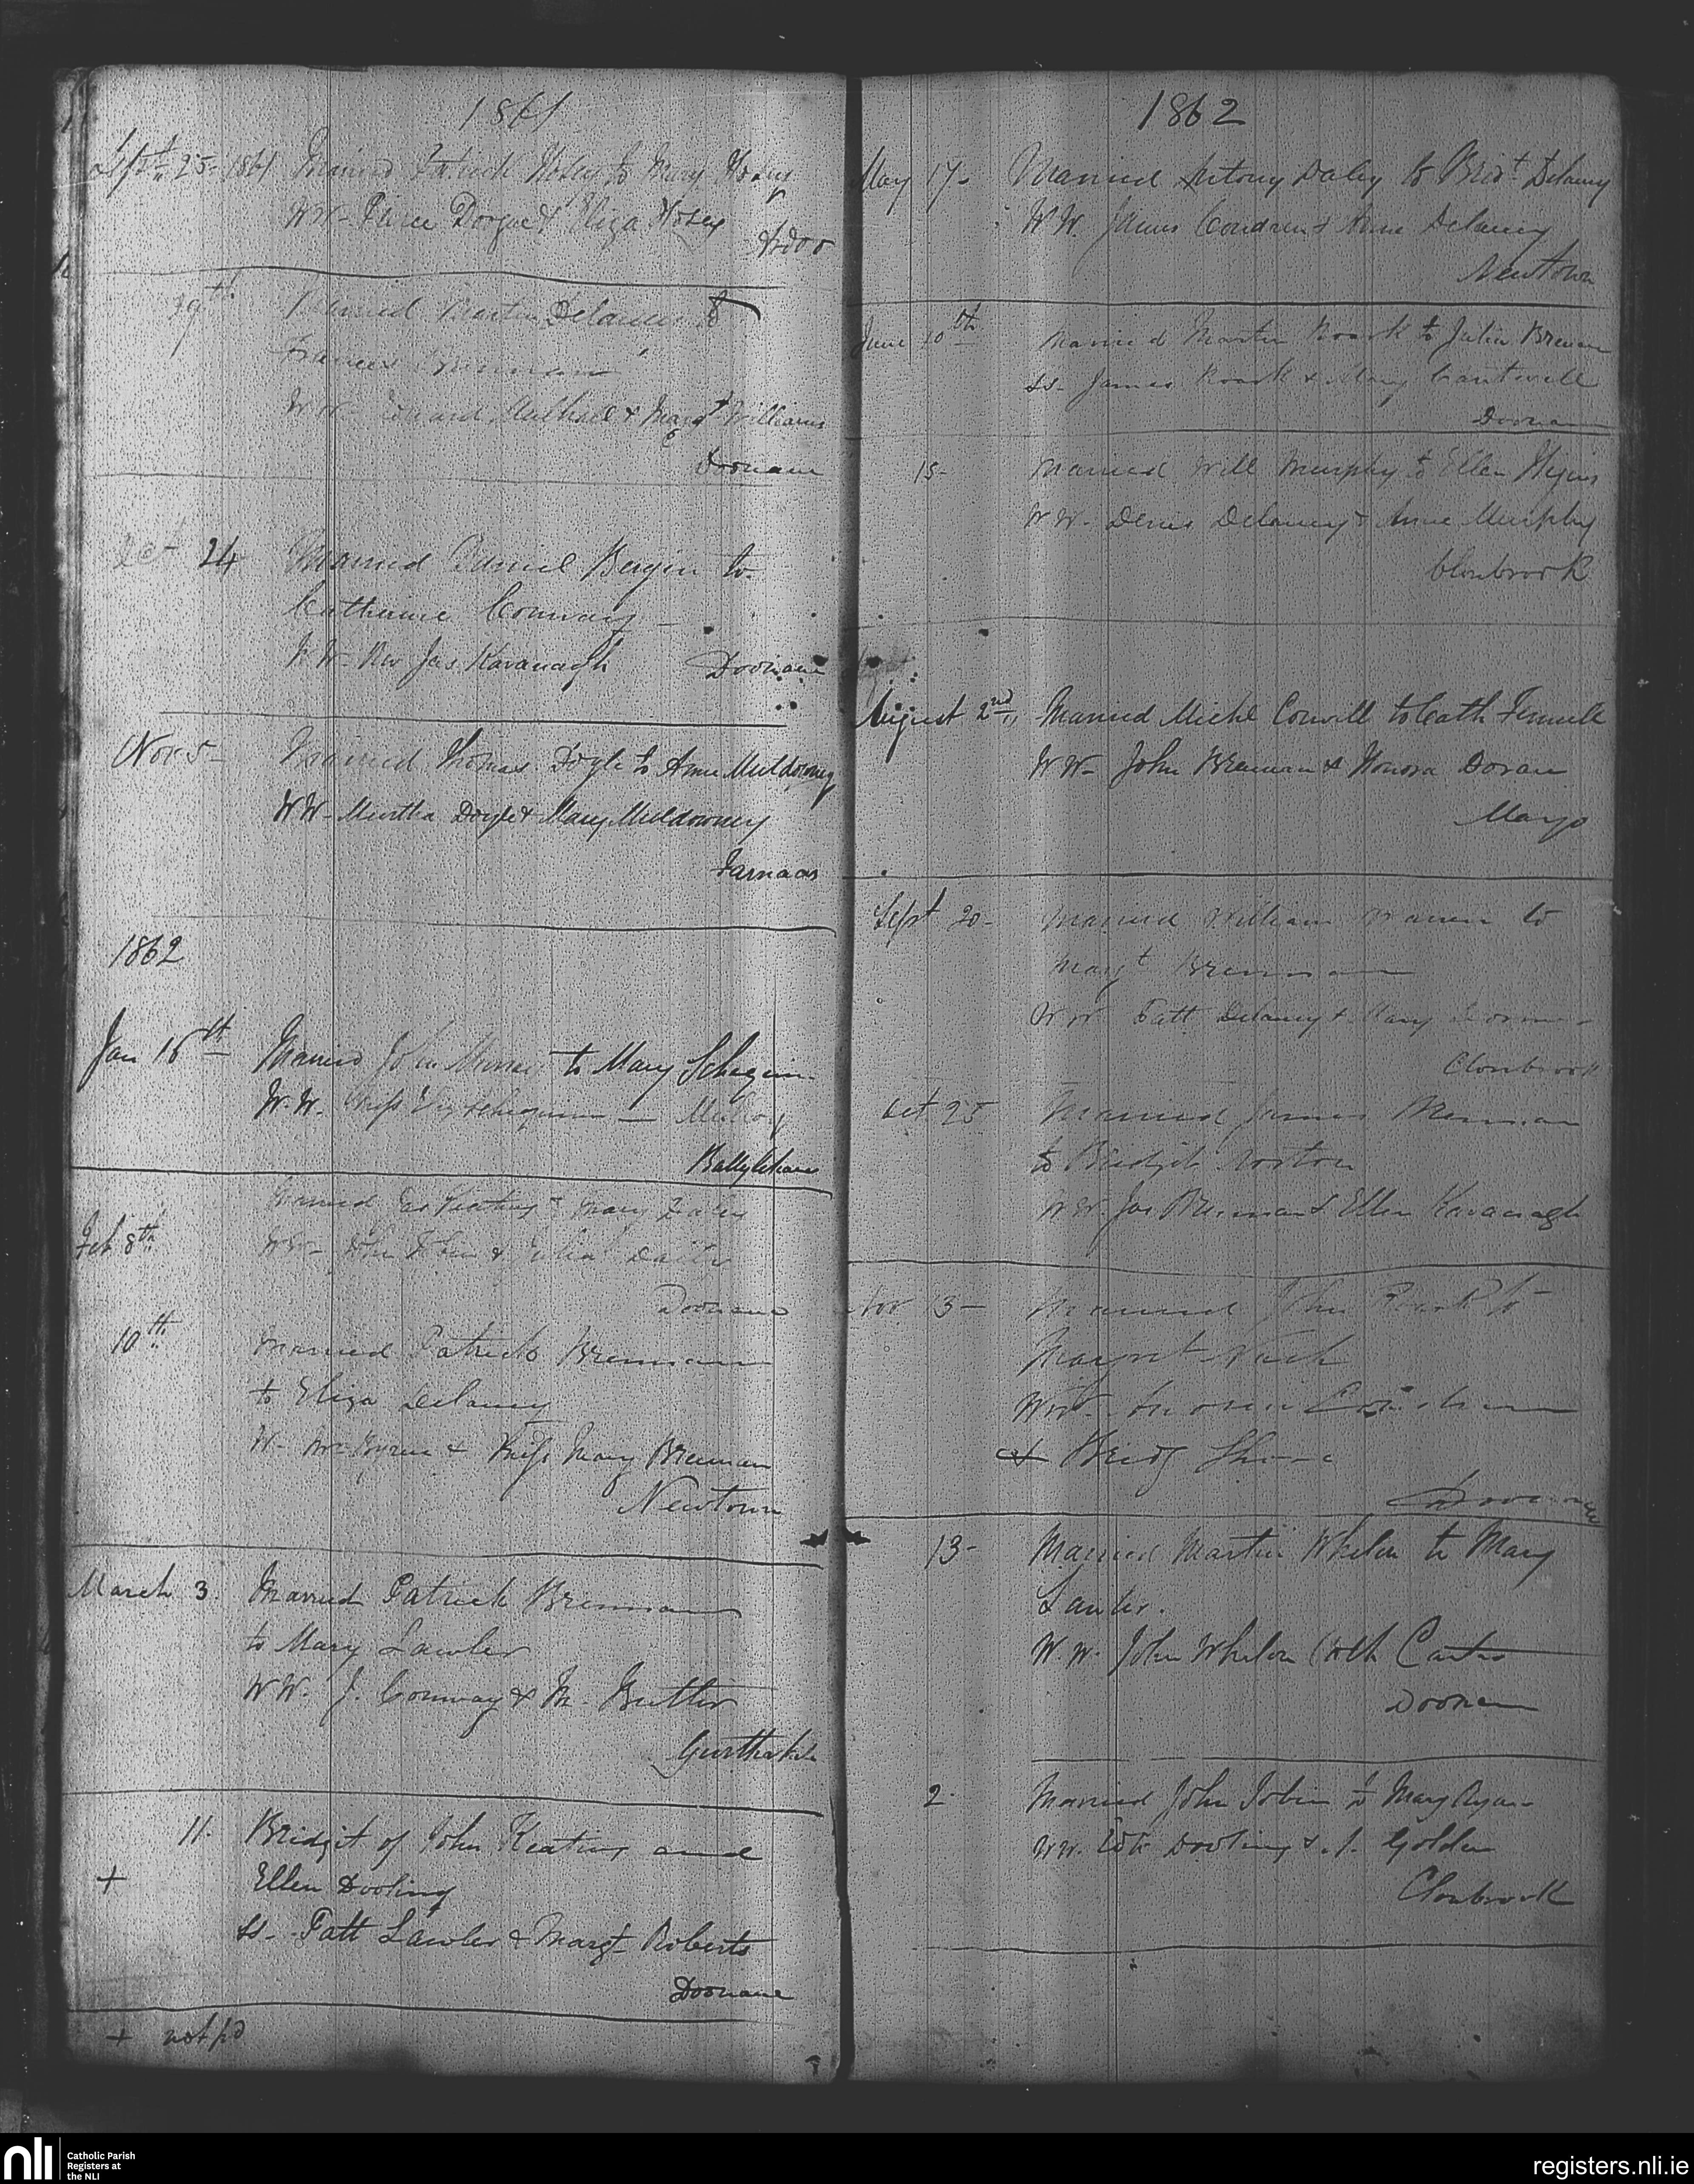 1861
Sept 25 1861 Married Patrick Hosey to Mary Hosey
WW- Pierce Dogue & Eliza Hosey
29th Married Martin Delaney to
Frances Brennan
WW- Edward Mulhall & Margt Williams
Doonane
Oct 24 Married Daniel Bergin to
Catherine Conway -
W W- Rev Jas Kavanagh Doonane
Nov 5- Married Thomas Doyle to Anne Muldowney
WW- Murtha Doyle & Mary Muldowney
Farnans
1862
Jan 16th Married John to Mary
W.W. Miss
Ballylehane
Married Jas Keating & Mary Daley
Feb 8th WW- John & Julia Daley
Doonane
10th Married Patrick Brennan
to Eliza Delaney
W- Byrne & Miss Mary Brennan
Newtown
March 3. Married Patrick Brennan
to Mary Lawler
WW. J. Conway & M. Butler
11. Bridgit of John Keating and
+ Ellen Dooling
ss- Patt Lawler & Margt Roberts
Doonane
+ not pd
1862
May 17- Married Antony Daley to Bridt Delaney
WW. James Condren & Anne Delaney
Newtown
June 10th Married Martin Roark to Julia Brennan
ss- James Roark & Mary Cantwell
Doonane
15- Married Will Murphy to Ellen Hyns
WW- Denis Delaney & Anne Murphy
Clonbrook
August 2nd, Married Michl Conwill to Cath Fennell
WW- John Brennan & Honora Doran
Mayo
Sept 20- Married William Warren to
Margt Brennan
WW Patt Delaney & Mary
Clonbrook
Oct 25 Married James Brennan
to Bridgit Norton
WW. Jas Brennan & Ellen Kavanagh
Nov 13- Married John Roark to
Margret Nash
WW-
& Bridg
Doonane
13- Married Martin Whelan to Mary
Lawler.
W.W. John Whelan Cath Carter
Doonane
2- Married John Tobin to Mary Ryan-
WW. Edw Dooling & J. Golden
Clonbrook
nli Catholic Parish
Registers at
the NLI
registers.nli.ie